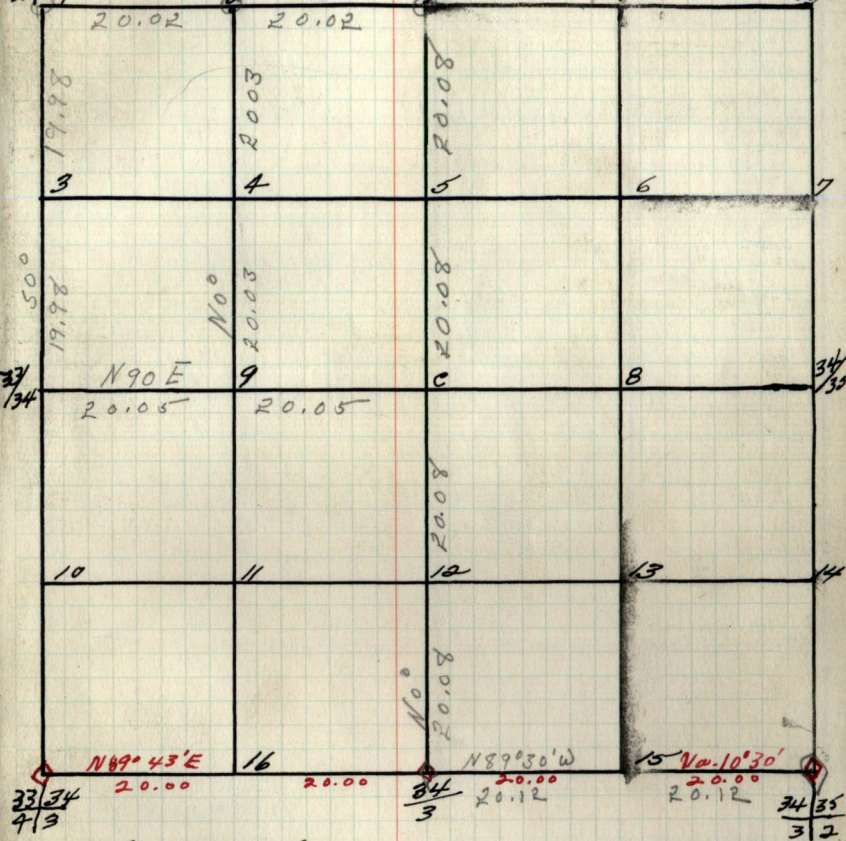 20.02 20.02
19.98 2003 20.08
3 4 5 6 7
S0° 19.98 N0° 20.03 20.08
33/34 N90E 9 c 8 34/35
20.05 20.05
20.08
10 11 12 13 14
N0° 20.08
N89°43'E 16 N89°30'W 15 Va.10°30'
20.00 20.00 20.00 20.00
33 34 34 20.12 20.12 34 35
4 3 3 3 2